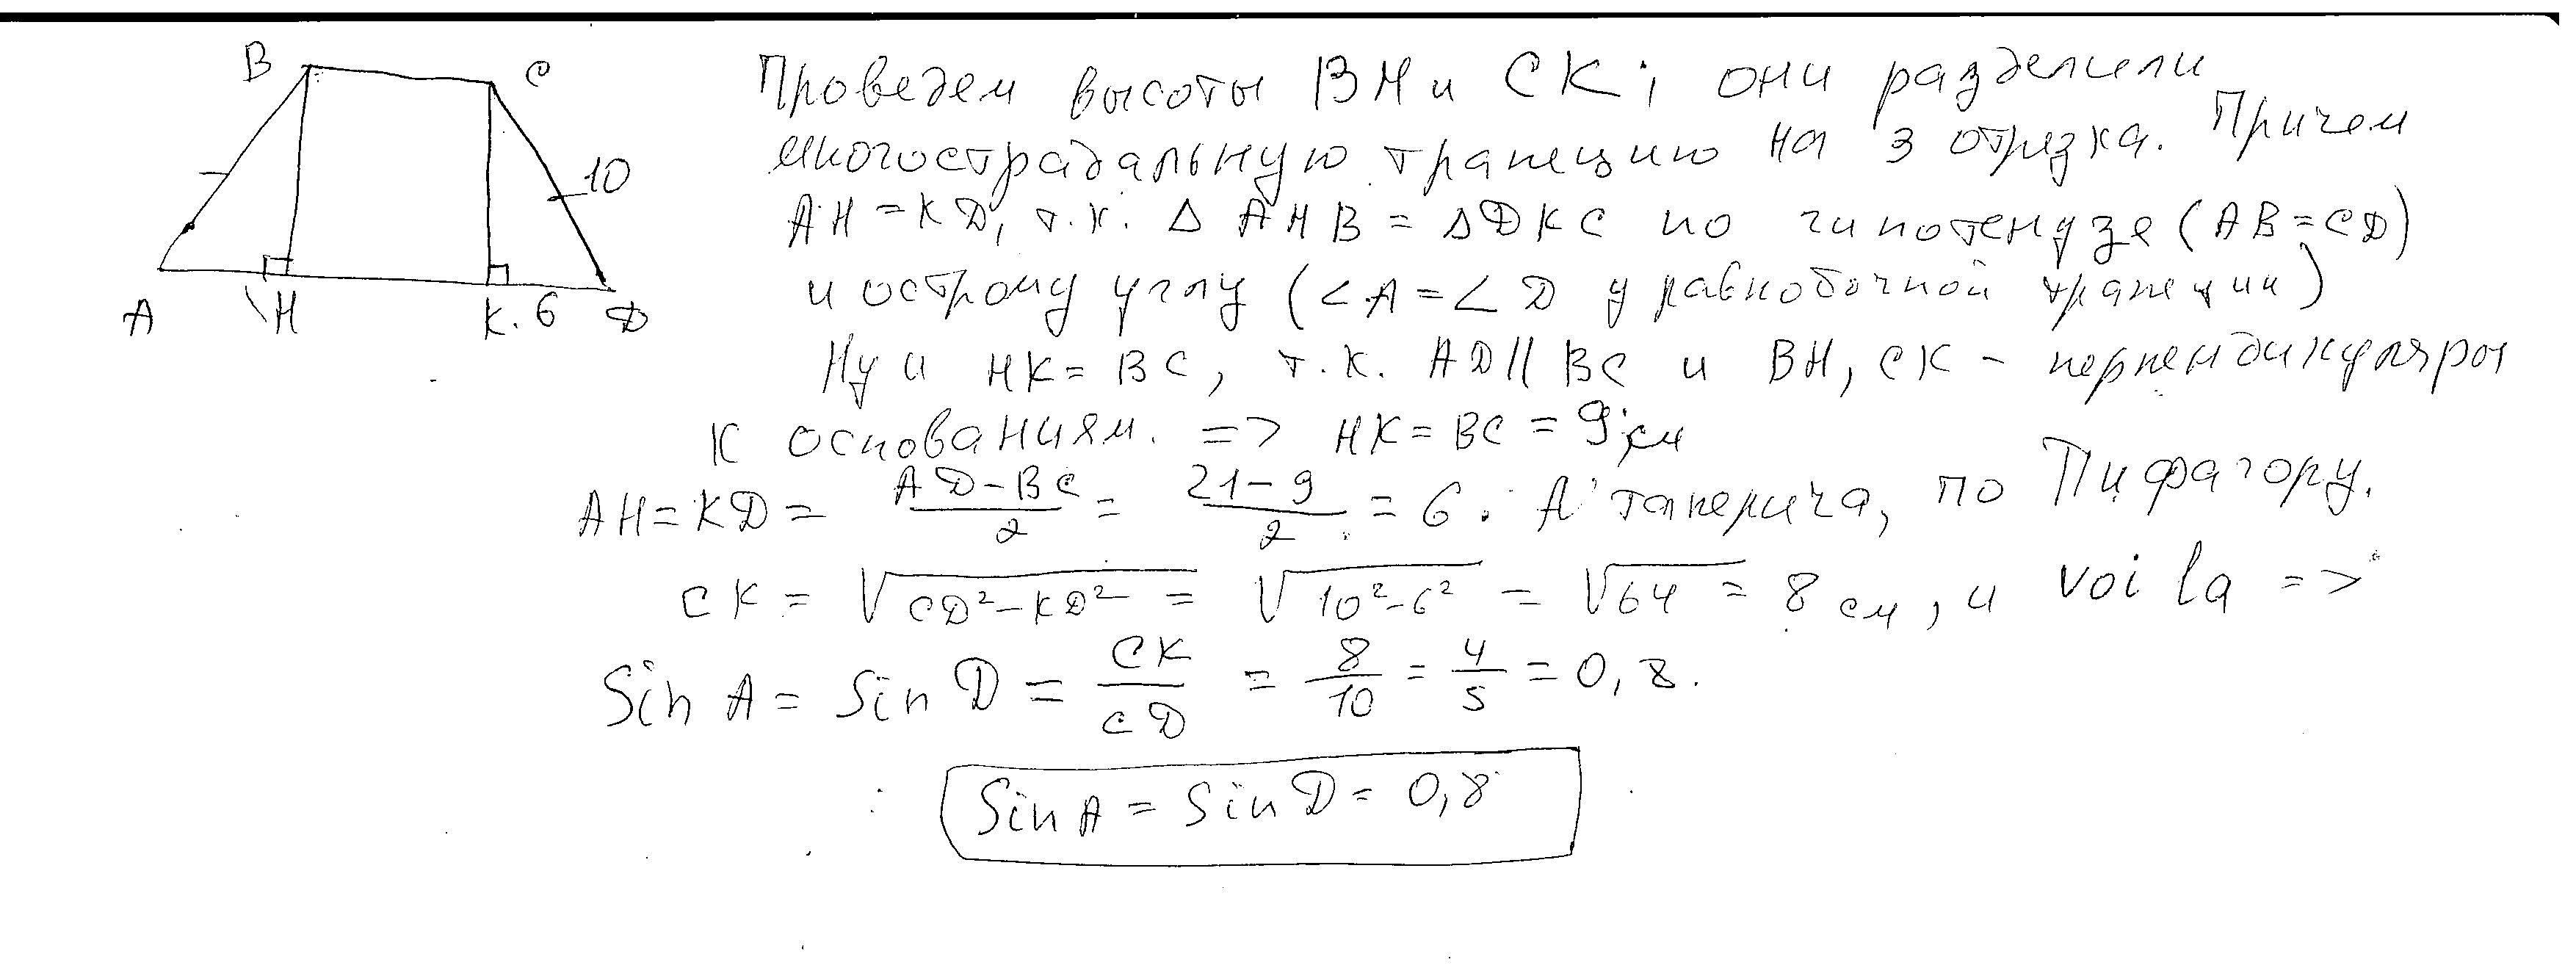 B C
10
A H K. 6 D
Проведем высоты BH и CK; они разделили
многострадальную трапецию на 3 отрезка. Причем
AH = KD, т.к. Δ AHB = Δ DKC по гипотенузе (AB = CD)
и острому углу (∠A = ∠D у равнобочной трапеции)
Ну и HK = BC, т.к. AD || BC и BH, CK - перпендикуляры
к основаниям. => HK = BC = 9 см
AH = KD = (AD - BC)/2 = (21 - 9)/2 = 6. А таперича, по Пифагору.
CK = √(CD² - KD²) = √(10² - 6²) = √64 = 8 см, и voila =>
Sin A = Sin D = CK/CD = 8/10 = 4/5 = 0,8.
Sin A = Sin D = 0,8